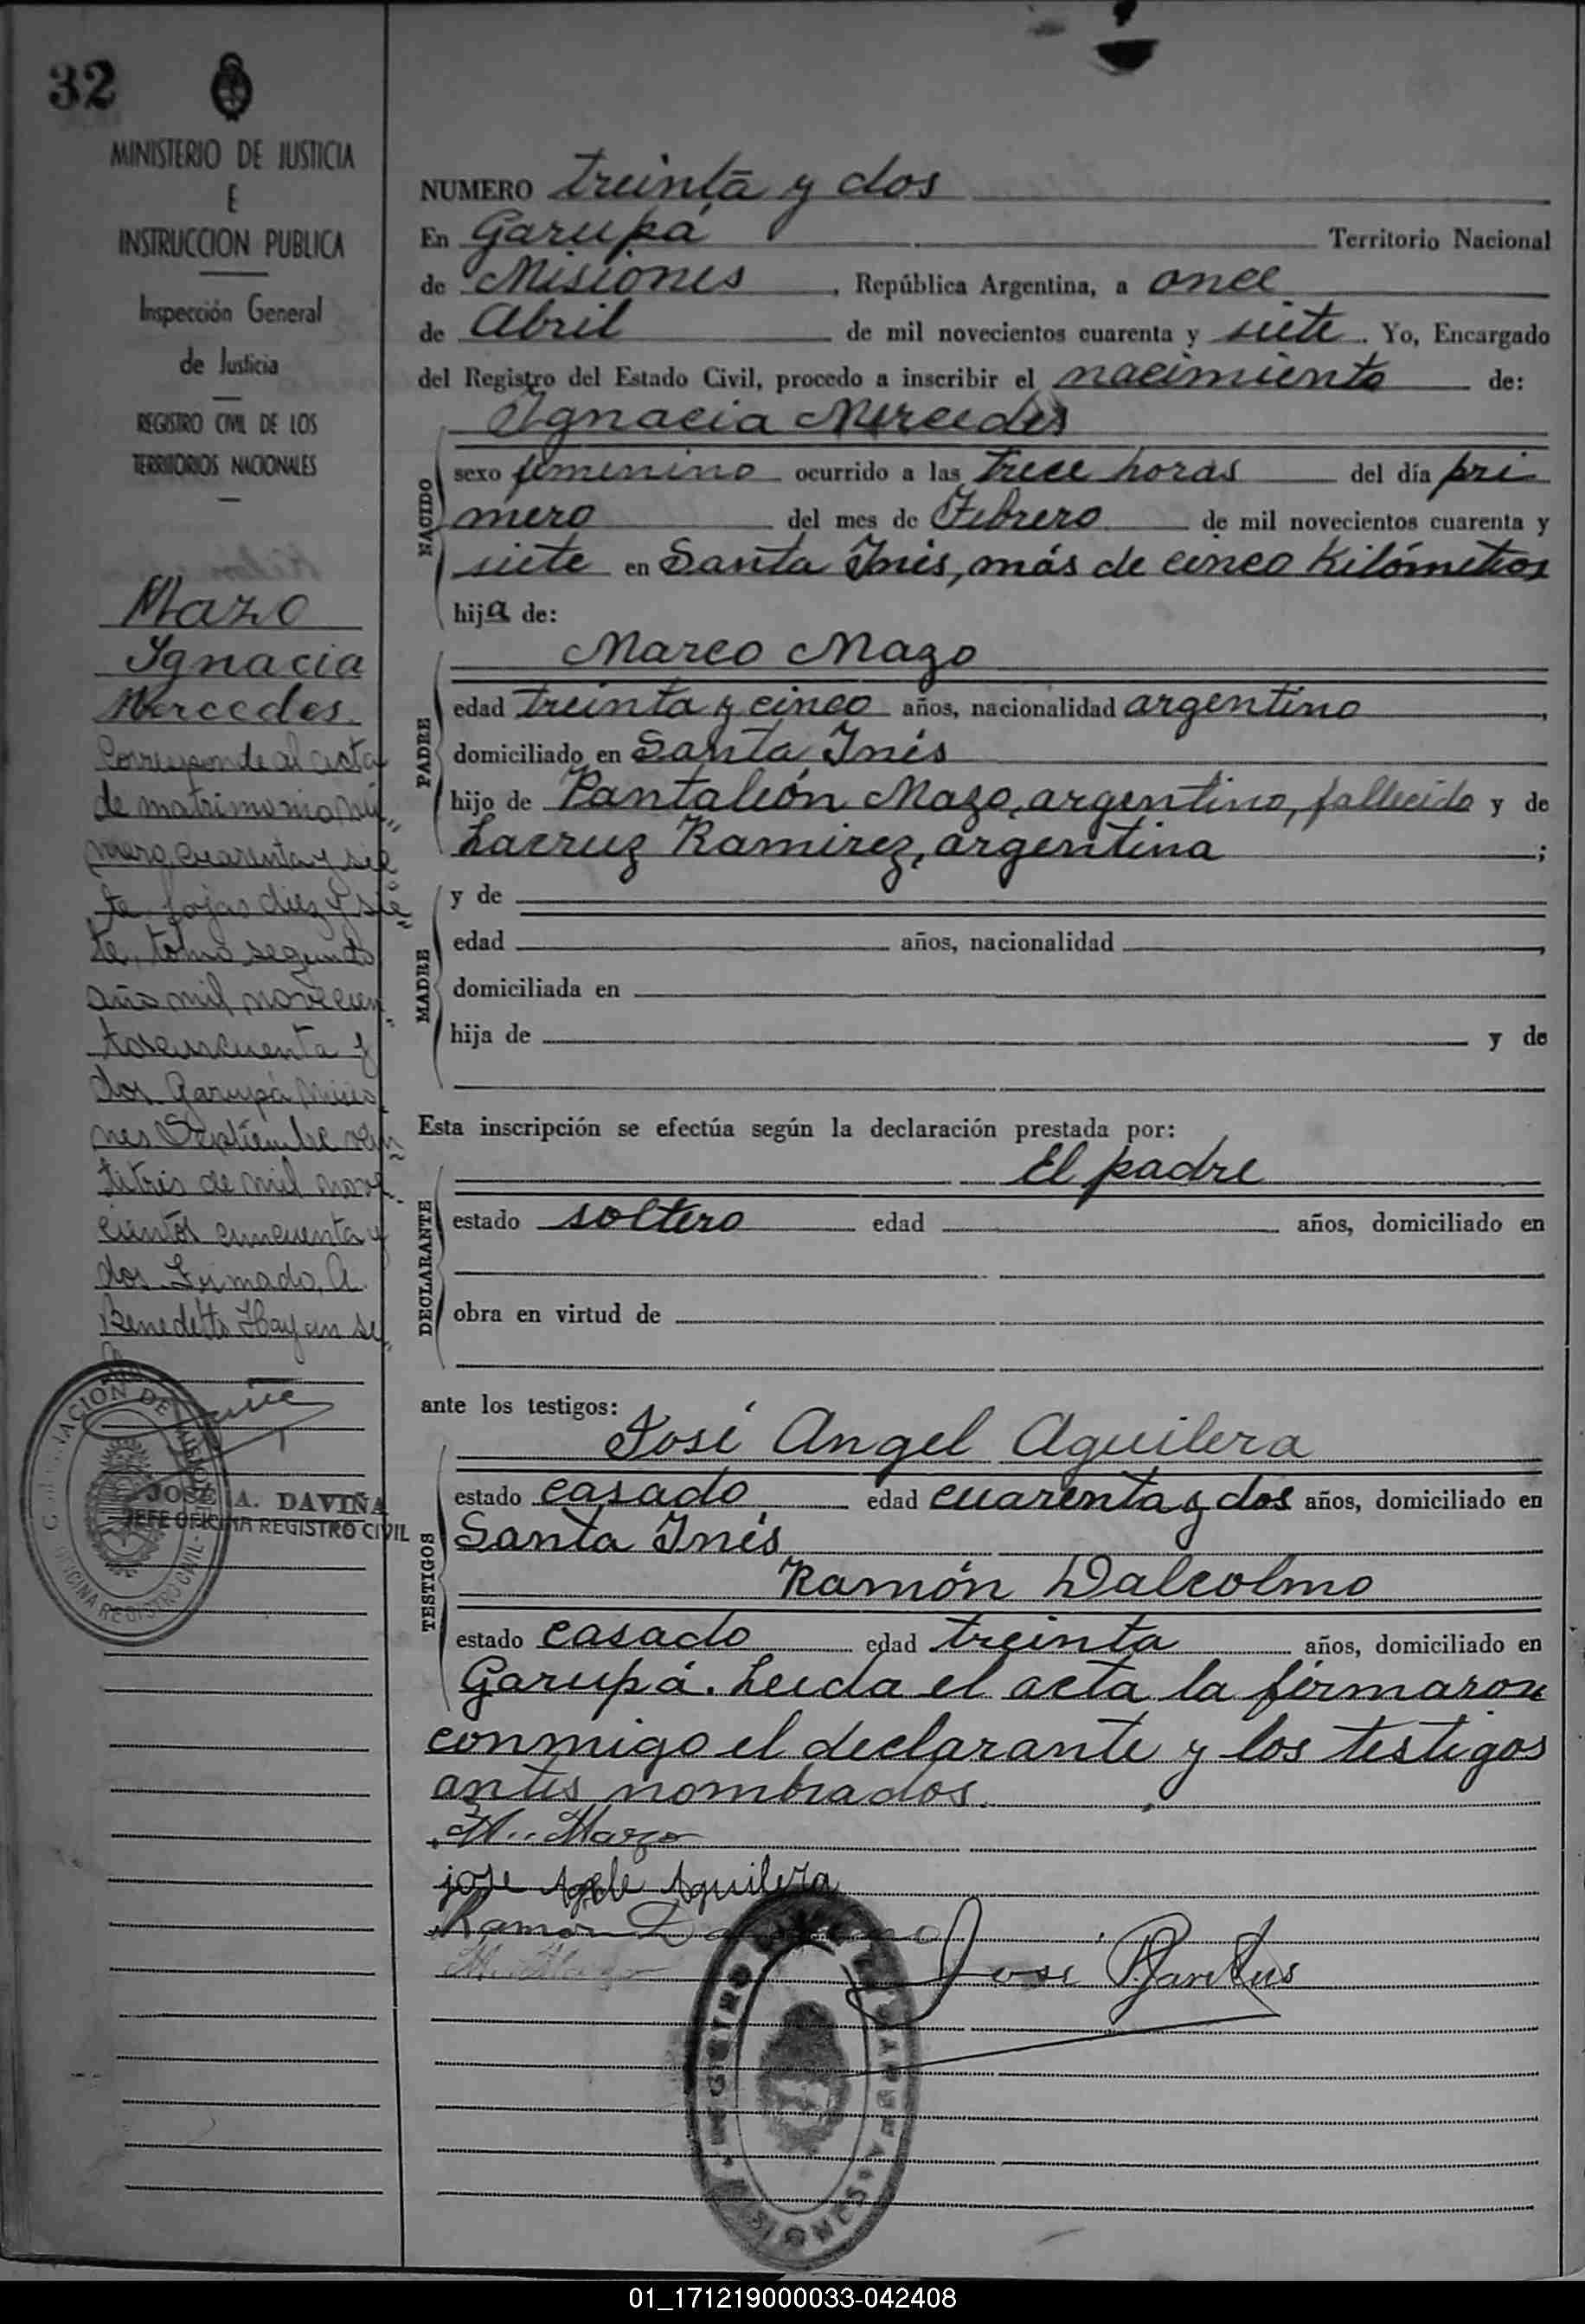 32
MINISTERIO DE JUSTICIA
E
INSTRUCCION PUBLICA
Inspección General
de Justicia
REGISTRO CIVIL DE LOS
TERRITORIOS NACIONALES
Mazo
Ignacia
Mercedes
Corresponde al acta
de matrimonio nú
mero cuarenta y sie
te, fojas diez y sie
te, tomo segundo
año mil novecien
tos cincuenta y
dos Garupá Misio
nes Septiembre vein
titrés de mil nove
cientos cincuenta y
dos Firmado, A.
Benedetto Hay un se
JOSE A. DAVIÑA
JEFE OFICINA REGISTRO CIVIL
NUMERO treinta y dos
En Garupá Territorio Nacional
de Misiones, República Argentina, a once
de Abril de mil novecientos cuarenta y siete. Yo, Encargado
del Registro del Estado Civil, procedo a inscribir el nacimiento de:
Ignacia Mercedes
NACIDO
sexo femenino ocurrido a las trece horas del día pri
mero del mes de Febrero de mil novecientos cuarenta y
siete en Santa Inés, más de cinco kilómetros
hija de:
Marco Mazo
PADRE
edad treinta y cinco años, nacionalidad argentino,
domiciliado en Santa Inés
hijo de Pantaleón Mazo, argentino, fallecido y de
Lacruz Ramirez, argentina;
y de
MADRE
edad años, nacionalidad,
domiciliada en
hija de y de
Esta inscripción se efectúa según la declaración prestada por:
El padre
DECLARANTE
estado soltero edad años, domiciliado en
obra en virtud de
ante los testigos:
José Angel Aguilera
TESTIGOS
estado casado edad cuarenta y dos años, domiciliado en
Santa Inés
Ramón Dalcolmo
estado casado edad treinta años, domiciliado en
Garupá. Leida el acta la firmaron
conmigo el declarante y los testigos
antes nombrados.
M. Mazo
jose Agele Aguilera
Ramon
José
01_171219000033-042408